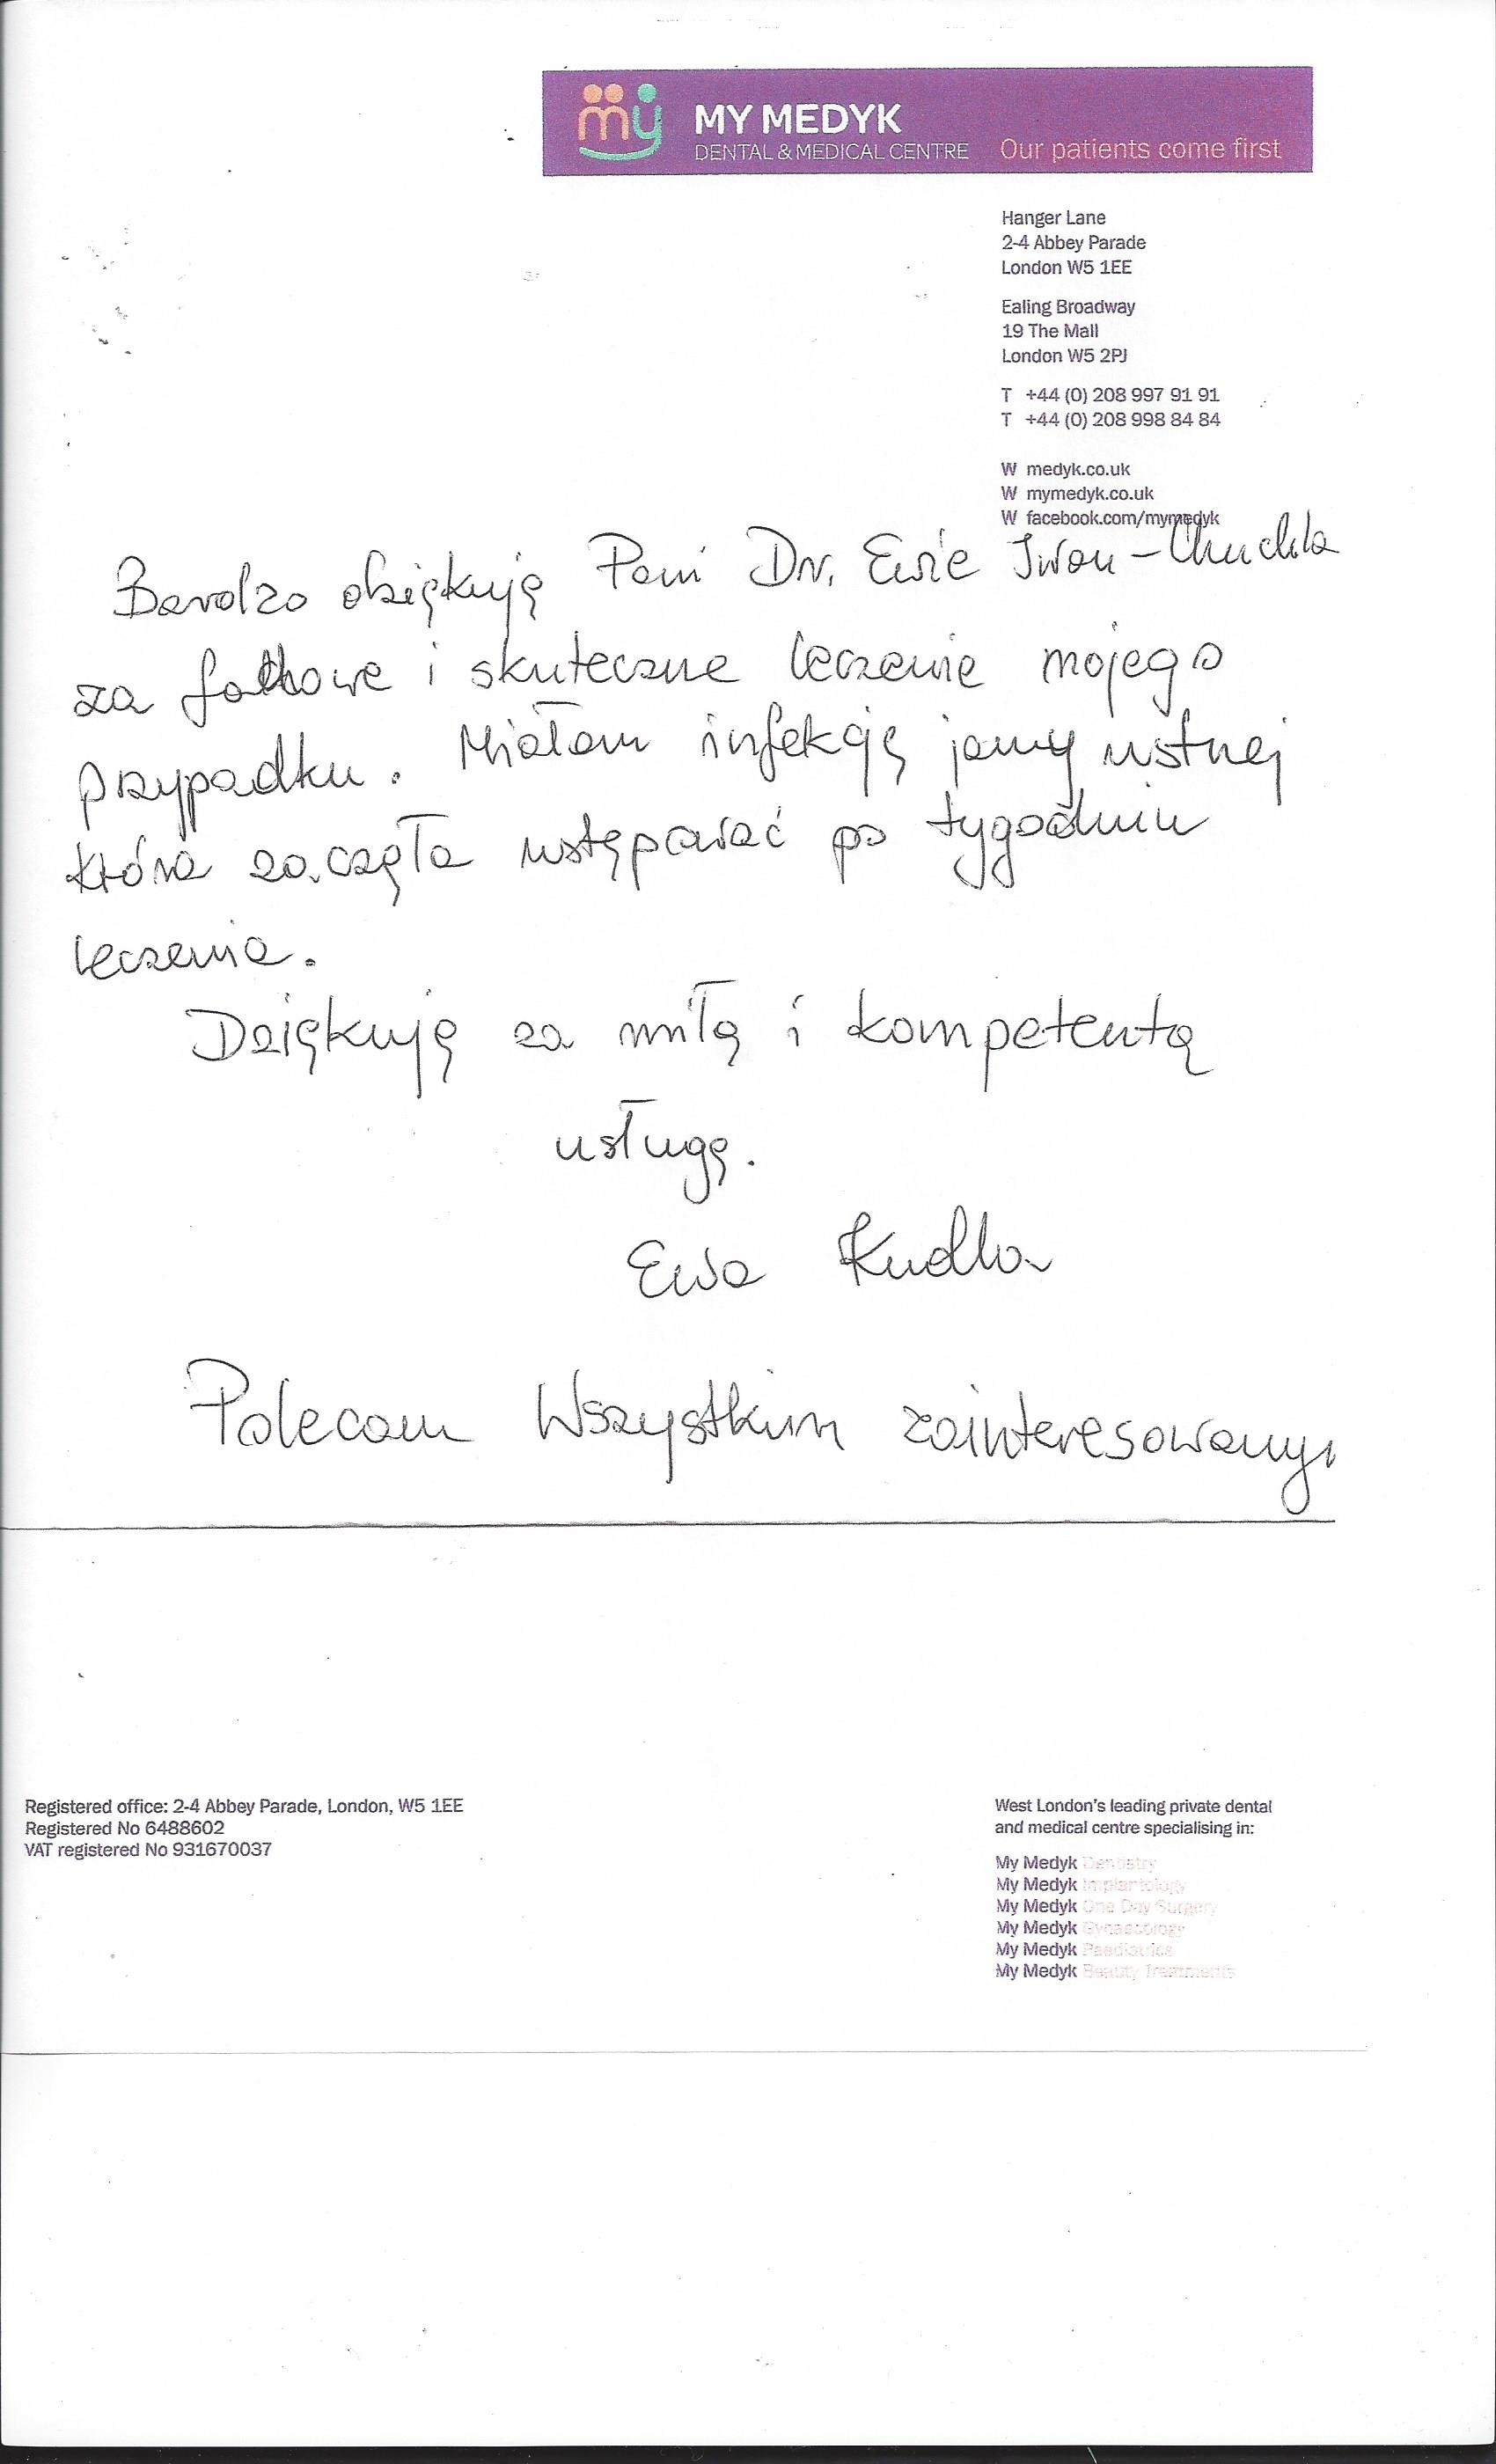 my MY MEDYK
DENTAL & MEDICAL CENTRE Our patients come first
Hanger Lane
2-4 Abbey Parade
London W5 1EE
Ealing Broadway
19 The Mall
London W5 2PJ
T +44 (0) 208 997 91 91
T +44 (0) 208 998 84 84
W medyk.co.uk
W mymedyk.co.uk
W facebook.com/mymedyk
Bardzo dziękuję Pani Dr. Ewie Iwan-Chuchla
za fachowe i skuteczne leczenie mojego
przypadku. Miałam infekcję jamy ustnej
która zaczęła ustępować po tygodniu
leczenia.
Dziękuję za miłą i kompetentą
usługę.
Ewa Kudła
Polecam Wszystkim zainteresowanym
Registered office: 2-4 Abbey Parade, London, W5 1EE
Registered No 6488602
VAT registered No 931670037
West London's leading private dental
and medical centre specialising in:
My Medyk Dentistry
My Medyk Implantology
My Medyk One Day Surgery
My Medyk Gynaecology
My Medyk Paediatrics
My Medyk Beauty Treatments